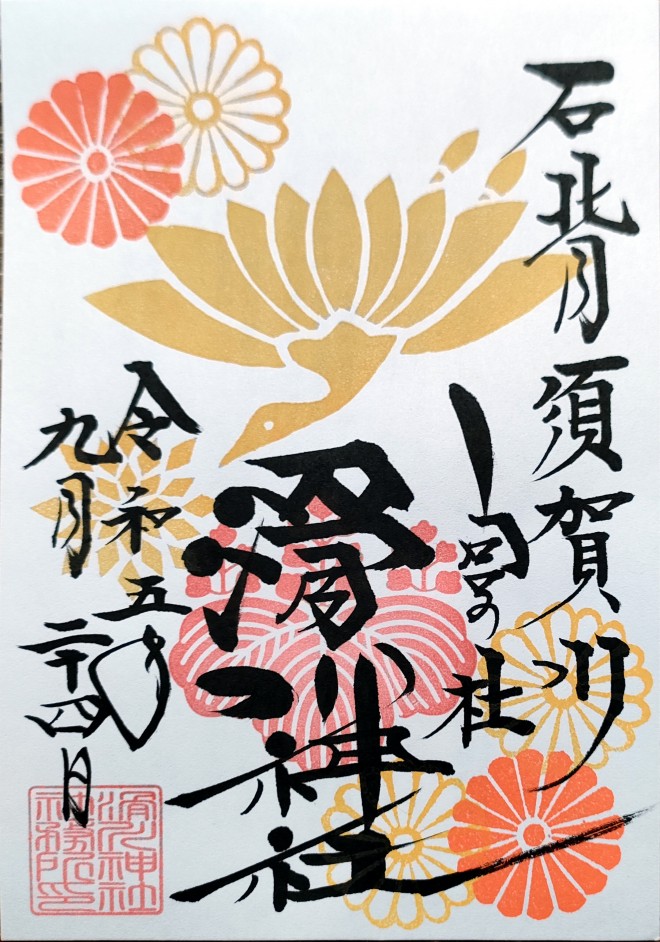 石背須賀川
の社
滑川神社
令和五年
九月二十四日
滑川神社
社務所印